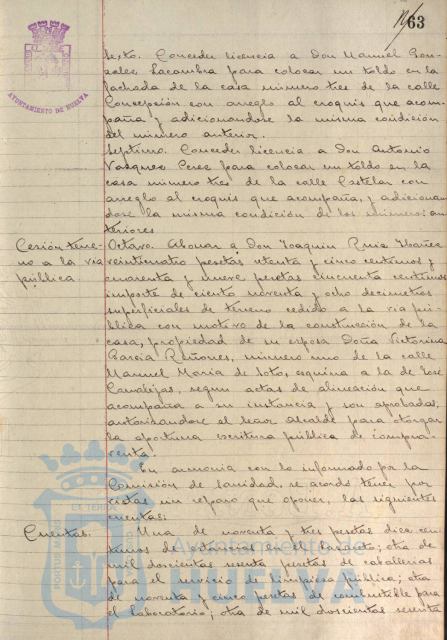 63
AYUNTAMIENTO DE HUELVA
Sexto. Conceder licencia a Don Manuel Gon-
zalez Lacambra para colocar un toldo en la
fachada de la casa número tres de la calle
Concepción con arreglo al croquis que acom-
paña y adicionandose la misma condición
del número anterior.
Septimo. Conceder licencia a Don Antonio
Vazquez Perez para colocar un toldo en la
casa número tres de la calle Castelar con
arreglo al croquis que acompaña, y adicionan-
dose la misma condición de los números an-
teriores
Cesión terre-
no a la via
pública.
Octavo. Abonar a Don Joaquin Ruiz Ibañez
veinticuatro pesetas ochenta y cinco centimos y
cuarenta y nueve pesetas cincuenta centimos
importe de ciento noventa y ocho decimetros
superficiales de terreno cedido a la via pú-
blica con motivo de la construcción de la
casa, propiedad de su esposa Doña Victorina
Garcia Quiñones, número uno de la calle
Manuel Maria de Soto, esquina a la de José
Canalejas, segun actas de alineación que
acompaña a su instancia y son aprobadas,
autorizandose al Señor Alcalde para otorgar
la oportuna escritura pública de compra-
venta.
En armonia con lo informado por la
Comisión de Sanidad, se acordó tener por
vistas sin reparo que oponer, las siguientes
cuentas:
Cuentas.
Una de noventa y tres pesetas diez cen-
timos de estancias en el Lazareto; otra de
mil doscientas sesenta pesetas de caballerias
para el servicio de limpieza pública; otra
de noventa y cinco pesetas de combustible para
el Laboratorio; otra de mil doscientas sesenta
Ayuntamiento de
HUELVA
PORTUS MARIS
ET TERRÆ